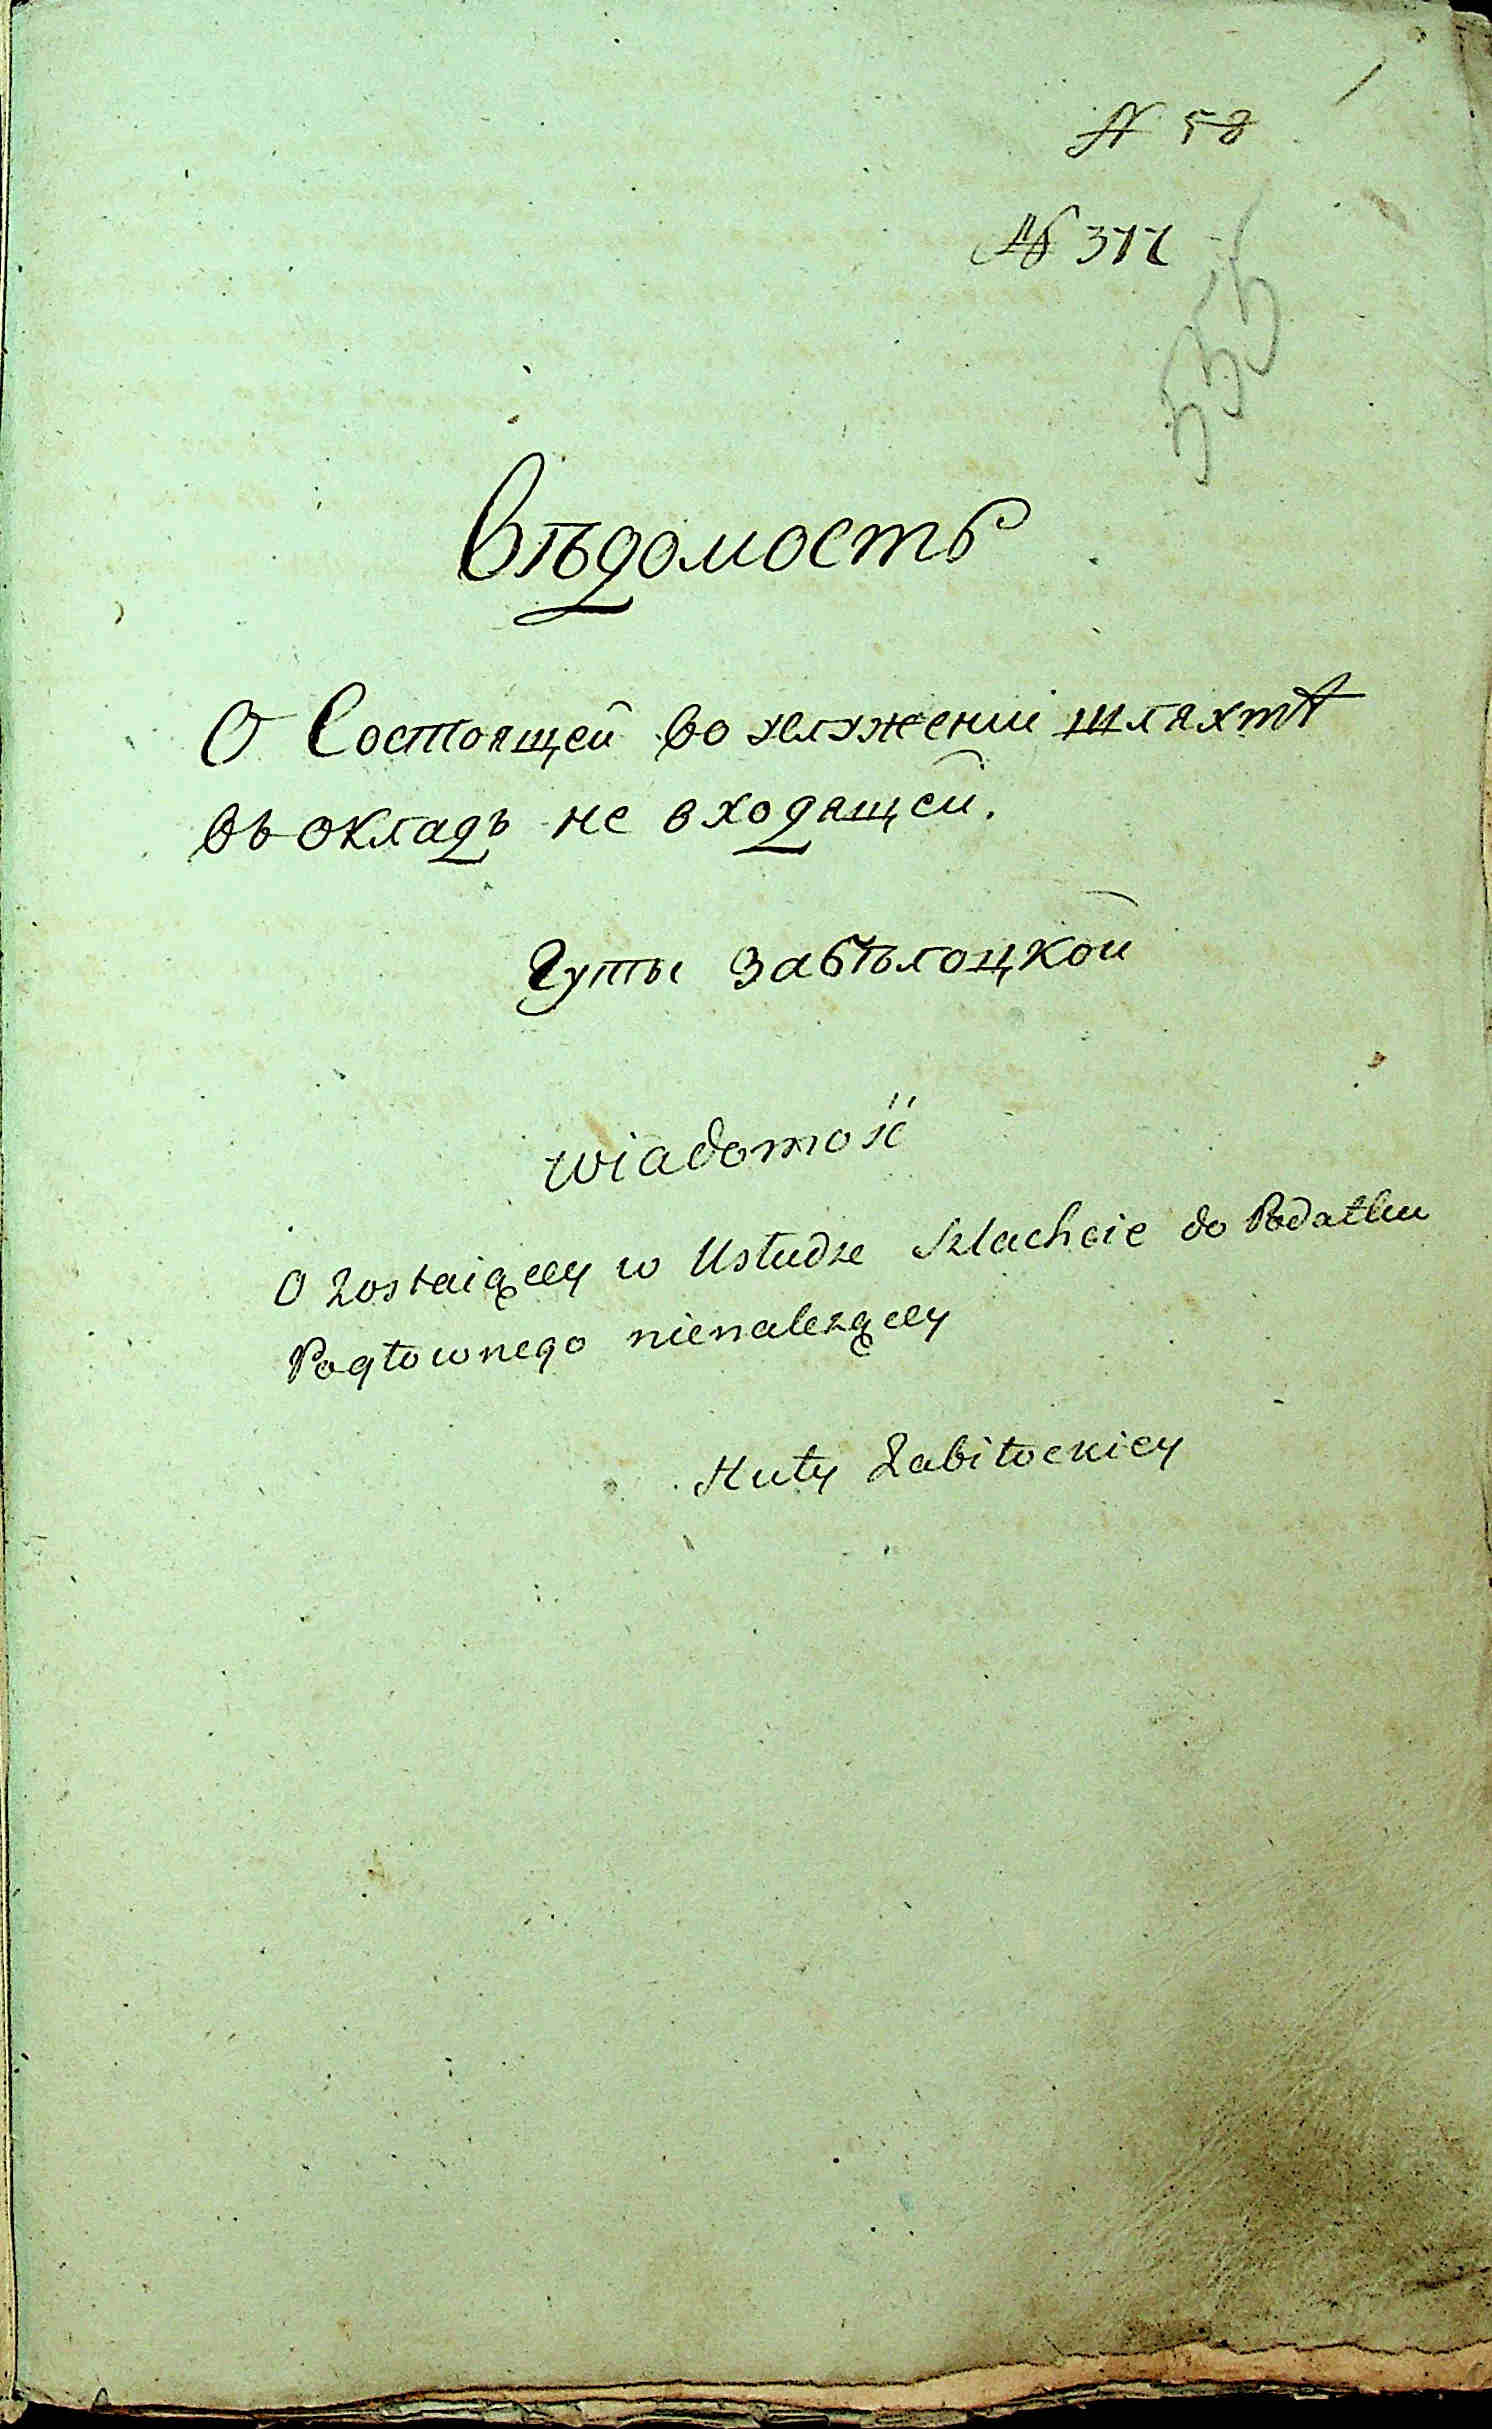 1
N 58
№ 377
555
Вѣдомость
О Состоящей во услужении шляхтѣ
въ окладъ не входящей.
Гуты Забѣлоцкой
Wiadomość
O Zostaiącey w Usłudze Szlachcie do Podatku
Pogłownego nienalezącey
Huty Zabiłockiey